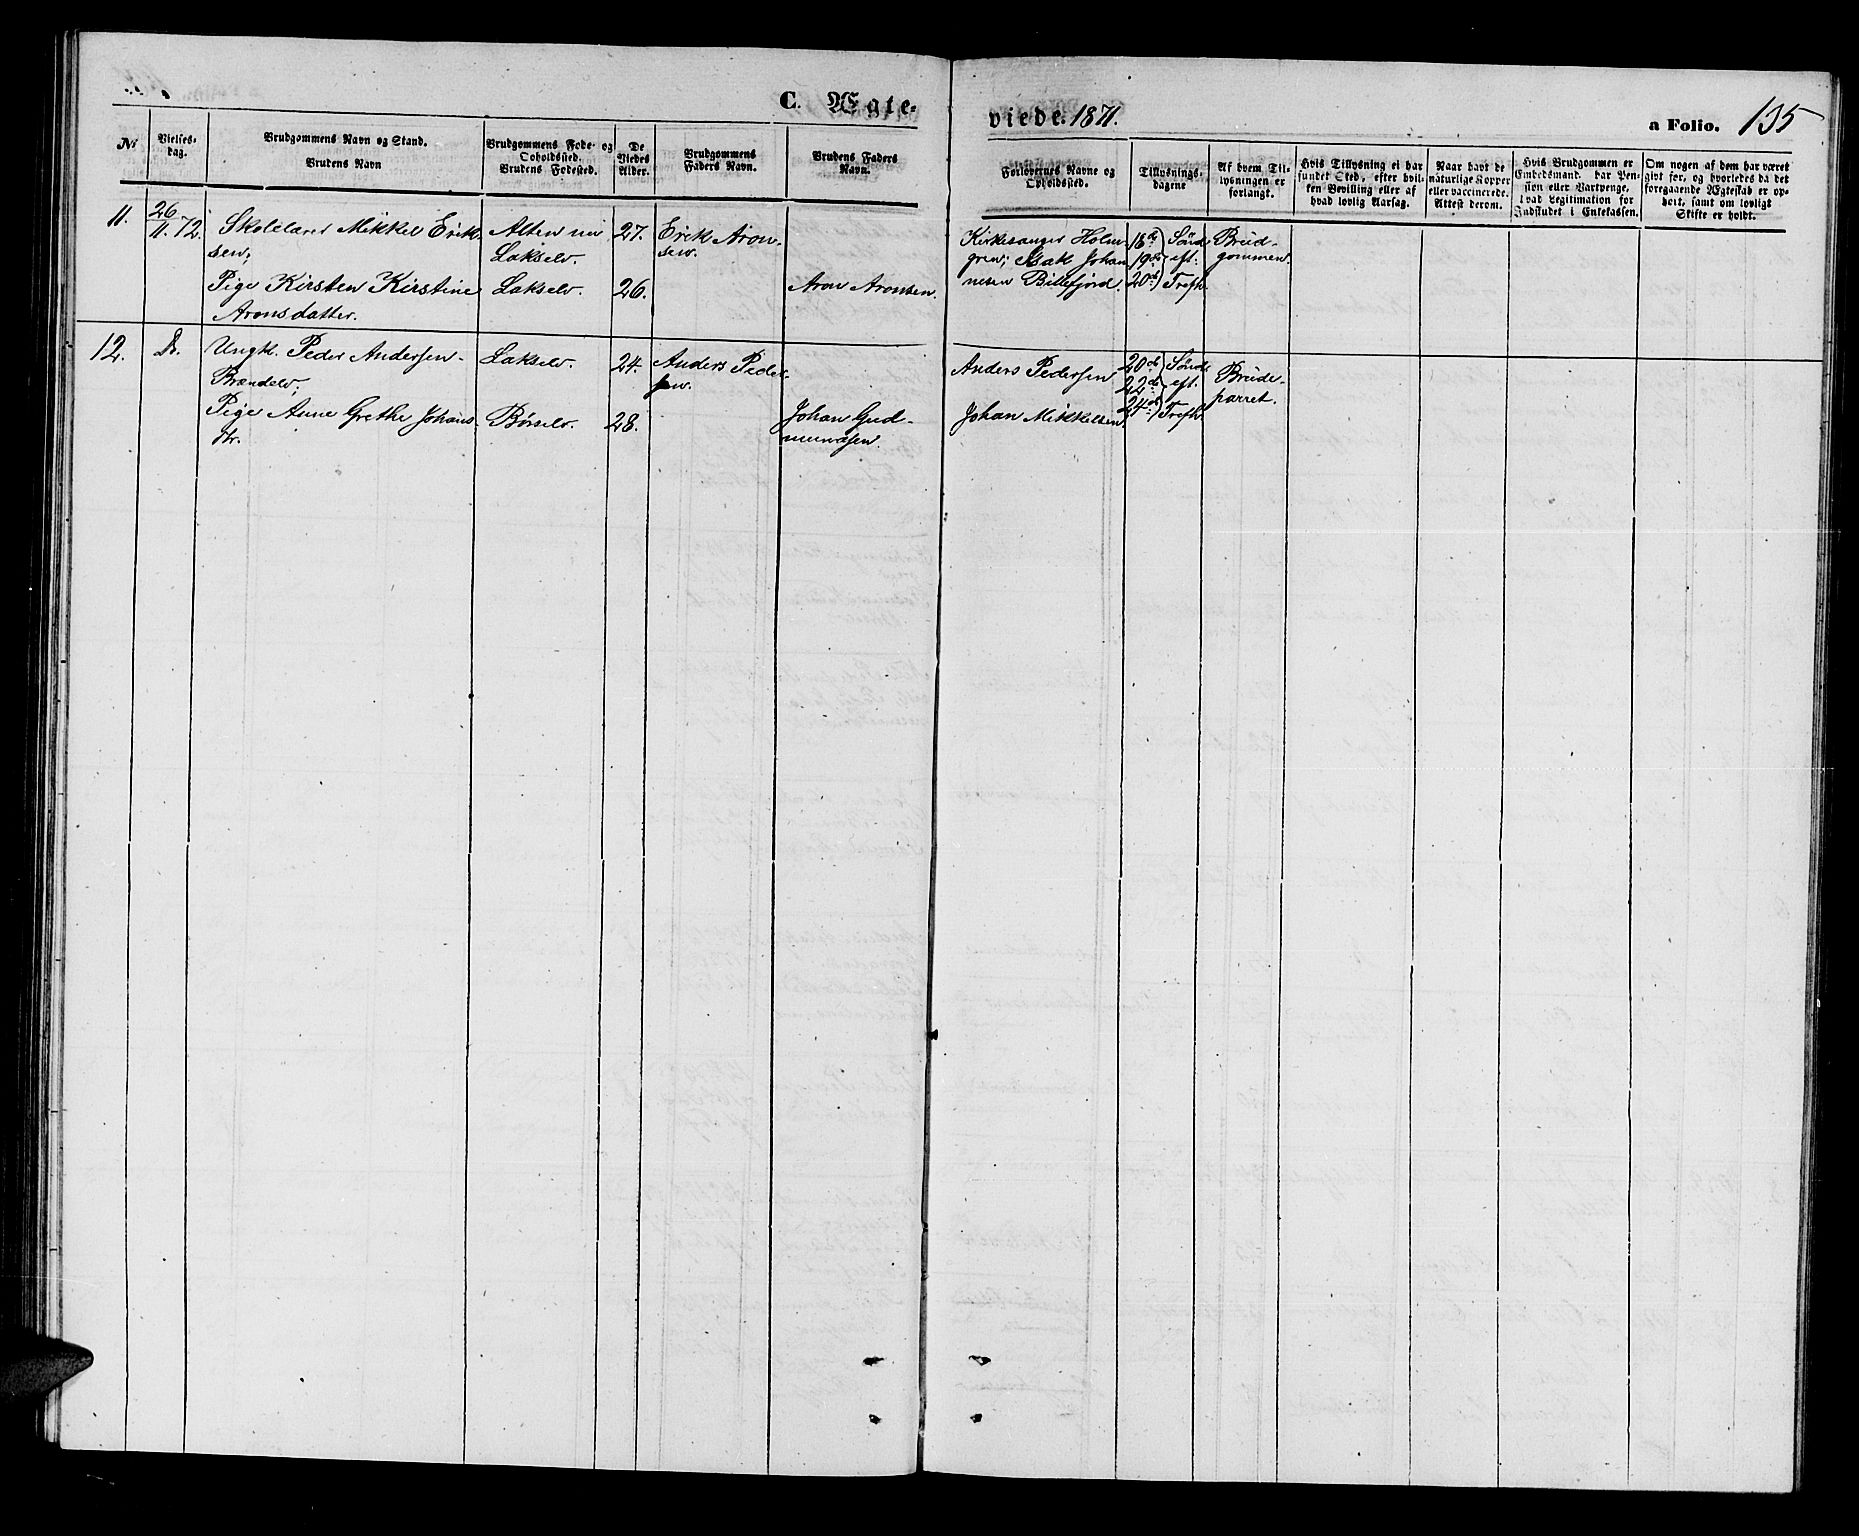 C. Ægte-
viede. 1871.
a Folio. 135
No
Vielses-
dag.
Brudgommens Navn og Stand.
Brudens Navn
Brudgommens Føde- og
Opholdssted.
Brudens Fødested.
De
Viedes
Alder.
Brudgommens
Faders Navn.
Brudens Faders
Navn.
Forlovernes Navne og
Opholdssted.
Tillysnings-
dagene
Af hvem Til-
lysningen er
forlangt.
Hvis Tillysning ei har
fundet Sted, efter hvil-
ken Bevilling eller af
hvad lovlig Aarsag.
Naar havt de
naturlige Kopper
eller vaccinerede.
Attest derom.
Hvis Brudgommen er
Embedsmand, har Pen-
sion eller Vartpenge,
hvad Legitimation for
Indskudet i Enkekassen.
Om nogen af dem har været
gift før, og hvorledes da det
foregaaende Ægteskab er op-
hævt, samt om lovligt
Skifte er holdt.
11. 26/11. 72. Skolelærer Mikkel Erik-
sen,
Alten nu
Lakselv.
27. Erik Aron-
sen.
Pige Kirsten Kirstine
Aronsdatter.
Lakselv. 26. Aron Aronsen.
Kirkesanger Holm-
gren, Isak Johan-
nesen Billefjord.
18de
19de
20de
Sönd.
eft.
Trefh.
Brud-
gommen.
12. D. Ungk. Peder Andersen
Brændelv,
Lakselv. 24. Anders Peder-
sen.
Pige Anne Grethe Johans-
dtr.
Børselv. 28. Johan Gud-
mundsen.
Anders Pedersen
Johan Mikkelsen
20de
22de
24de
Sönd.
eft.
Trefh.
Brude-
parret.